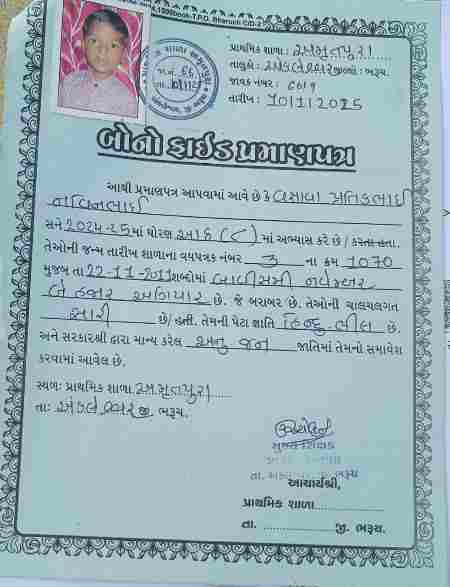 પ્રાથમિક શાળા : અમૃતપુરા
તાલુકો : અંકલેશ્વર જીલ્લો : ભરૂચ.
જાવક નંબર :
તારીખ : 10/1/2025
બોનોફાઈડ પ્રમાણપત્ર
આથી પ્રમાણપત્ર આપવામાં આવે છે કે વસાવા પ્રતિકભાઈ
નવિનભાઈ
સને 2024-25માં ધોરણ આઠ (૮) માં અભ્યાસ કરે છે / કરતા હતા.
તેઓની જન્મ તારીખ શાળાના વયપત્રક નંબર 3 ના ક્રમ 1070
મુજબ તા 22-11-2011શબ્દોમાં બાવીસમી નવેમ્બર
બે હજાર અગિયાર છે. જે બરાબર છે. તેઓની ચાલચલગત
સારી છે/ હતી. તેમની પેટા જાતિ હિન્દુ ભીલ છે.
અને સરકારશ્રી દ્વારા માન્ય કરેલ અનુ જન જાતિમાં તેમનો સમાવેશ
કરવામાં આવેલ છે.
સ્થળ: પ્રાથમિક શાળા અમૃતપુરા
તા: અંકલેશ્વર જી. ભરૂચ.
મુખ્ય શિક્ષક
આચાર્યશ્રી,
પ્રાથમિક શાળા
તા. જી. ભરૂચ.